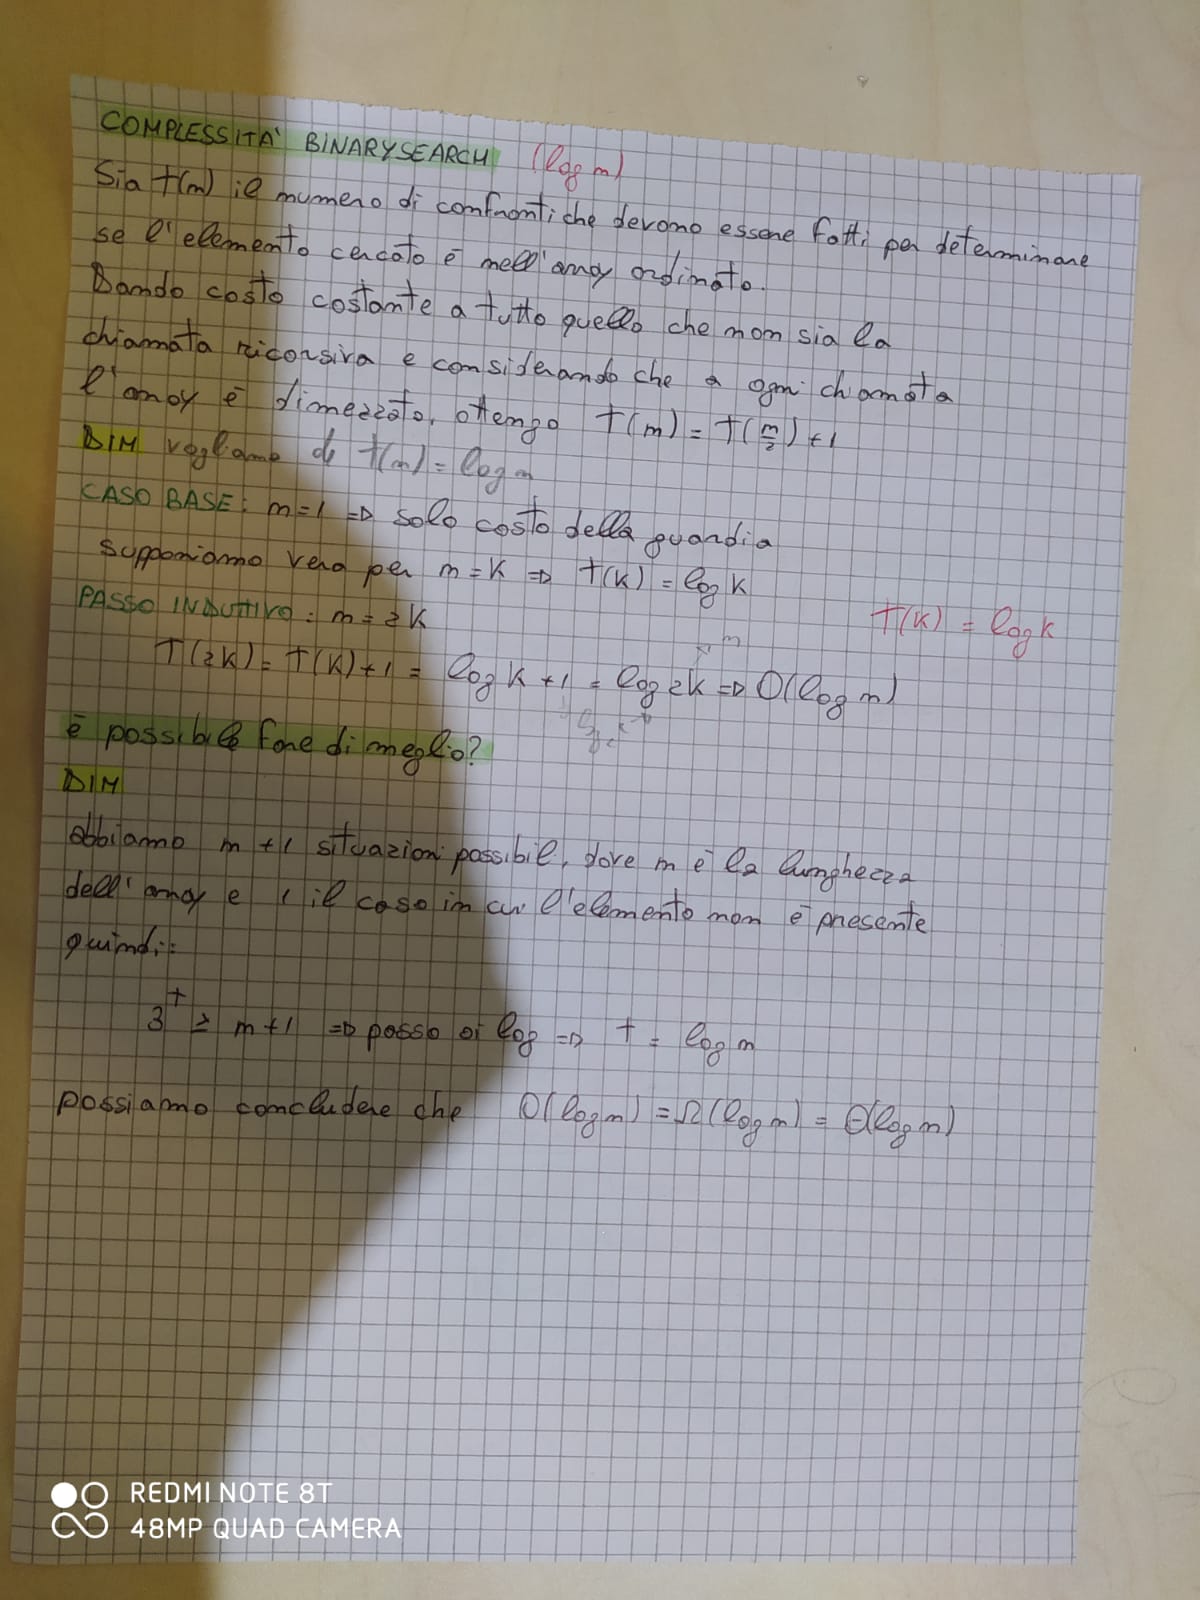 COMPLESSITA' BINARYSEARCH (log n)
Sia T(n) il numero di confronti che devono essere fatti per determinare
se l'elemento cercato è nell'array ordinato.
Dando costo costante a tutto quello che non sia la
chiamata ricorsiva e considerando che a ogni chiamata
l'array è dimezzato, ottengo T(n) = T(n/2) + 1
DIM vogliamo dim T(n) = log n
CASO BASE: n=1 => solo costo della guardia
supponiamo vera per n=K => T(K) = log K
PASSO INDUTTIVO: n=2K
T(K) = log K
T(2K) = T(K)+1 = log K +1 = log 2K => O(log n)
n
è possibile fare di meglio?
DIM
abbiamo n+1 situazioni possibili, dove n è la lunghezza
dell'array e 1 il caso in cui l'elemento non è presente
quindi:
3^T ≥ n+1 => passo ai log => T = log n
possiamo concludere che O(log n) = Ω(log n) = Θ(log n)
REDMI NOTE 8T
48MP QUAD CAMERA